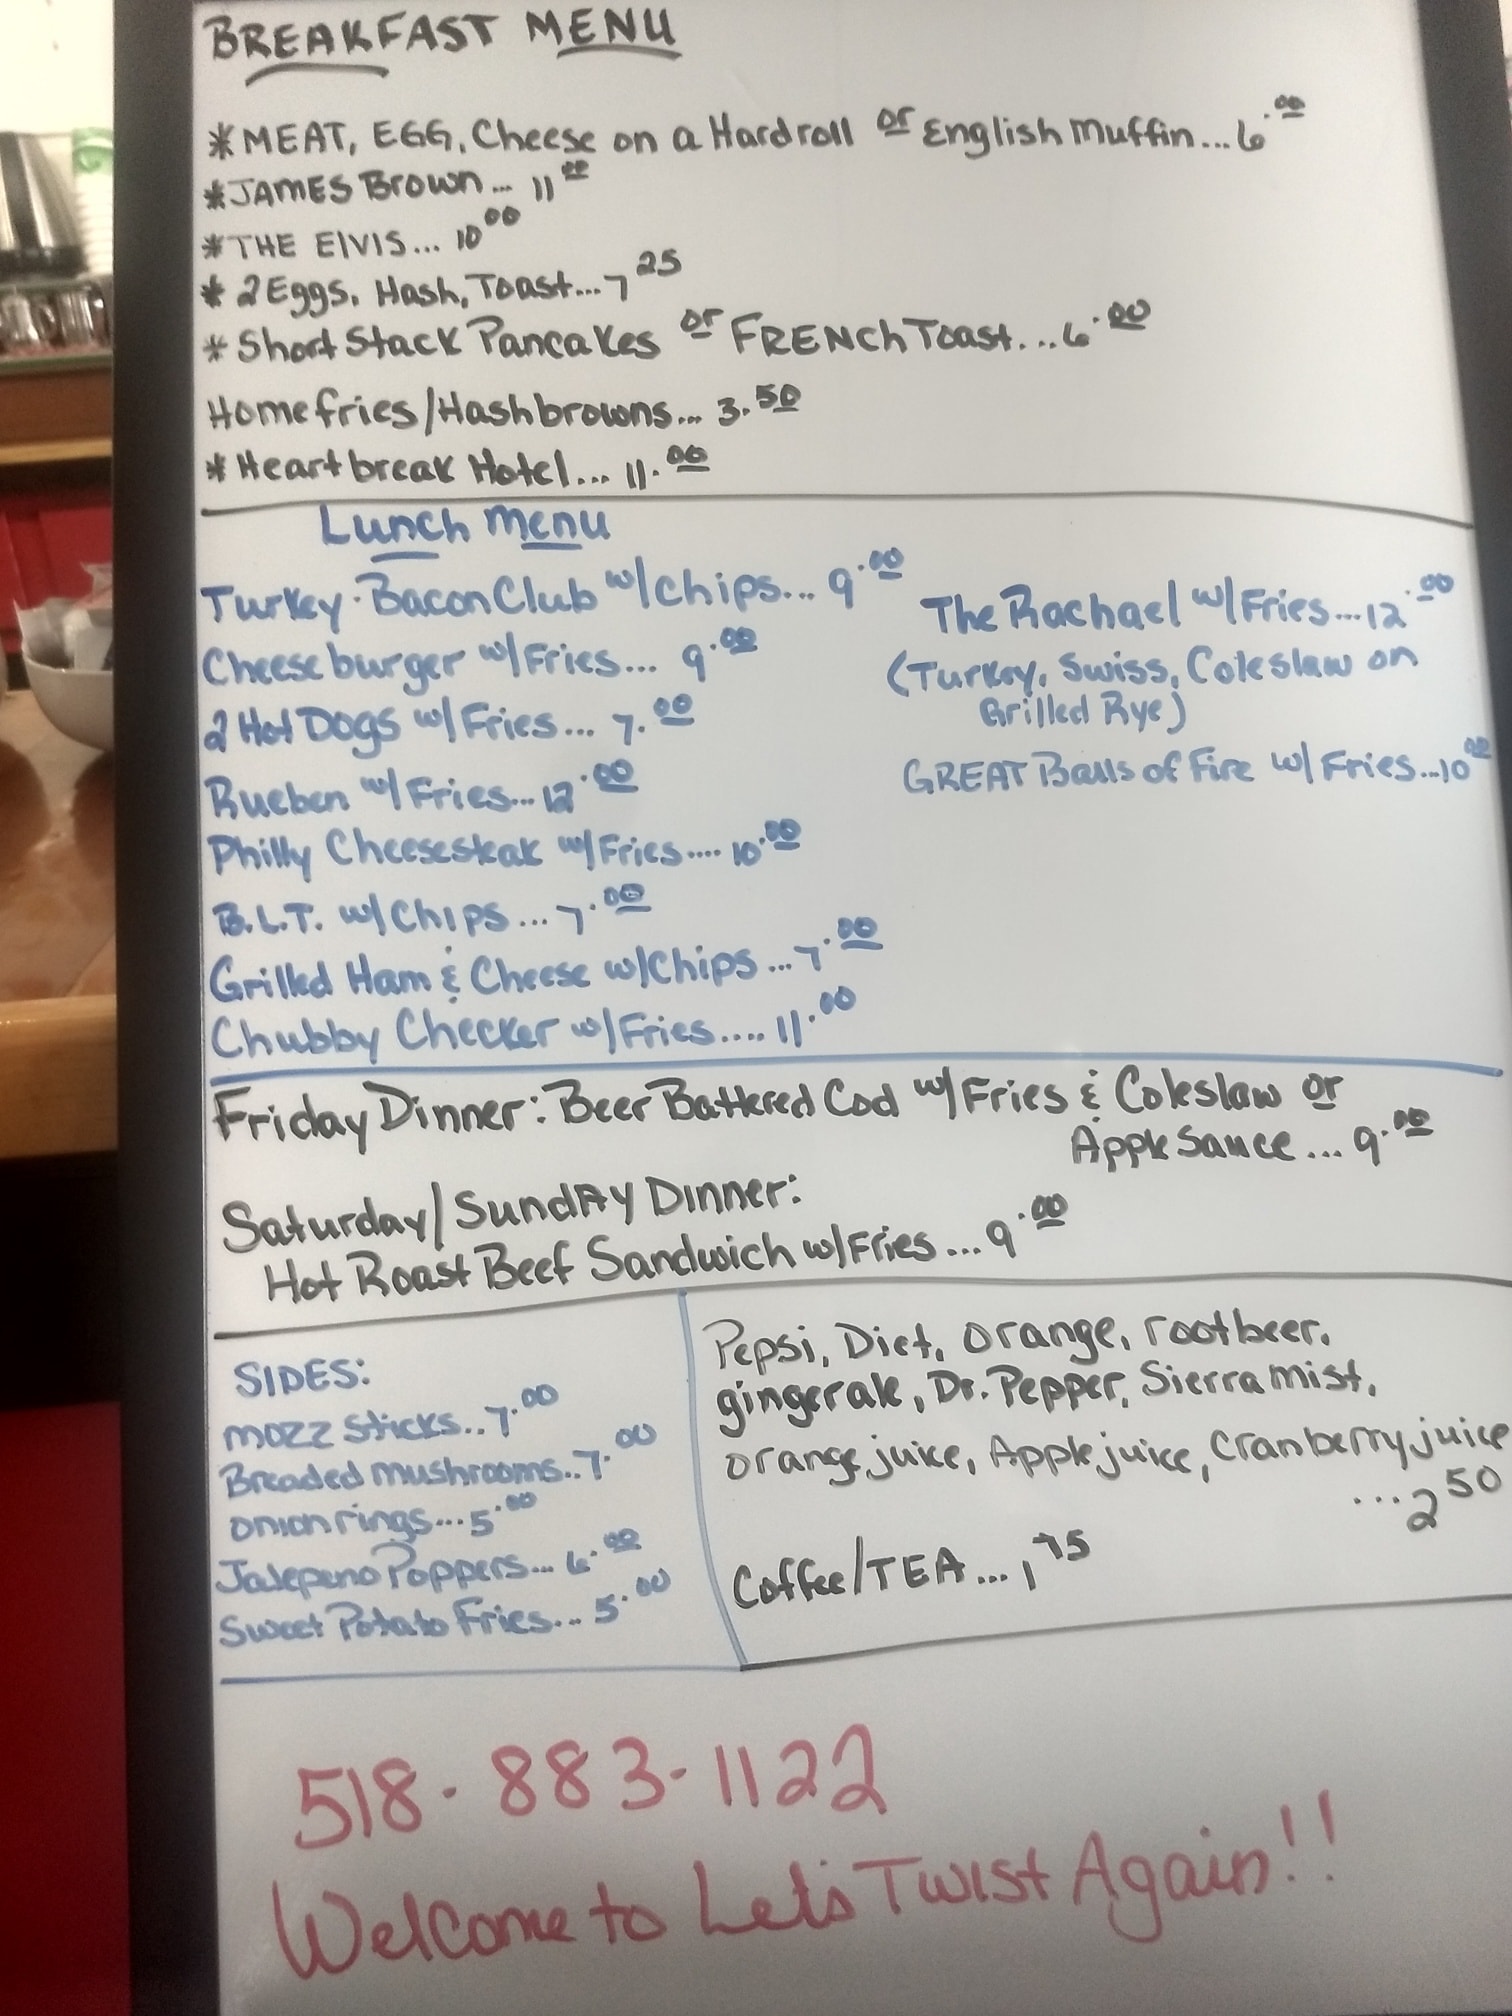 BREAKFAST MENU
*MEAT, EGG, Cheese on a Hardroll or English Muffin...6.00
*JAMES Brown... 11.00
*THE ElVIS... 10.00
* 2 Eggs, Hash, Toast...7.25
* Short Stack Pancakes or FRENCh Toast...6.00
Homefries/Hashbrowns... 3.50
*Heartbreak Hotel... 11.00
Lunch Menu
Turkey-Bacon Club w/Chips... 9.00
Cheeseburger w/Fries... 9.00
2 Hot Dogs w/Fries... 7.00
Rueben w/Fries...12.00
Philly Cheesesteak w/Fries.... 10.00
B.L.T. w/Chips ...7.00
Grilled Ham & Cheese w/Chips ...7.00
Chubby Checker w/Fries.... 11.00
The Rachael w/Fries...12.00
(Turkey, Swiss, Coleslaw on
Grilled Rye)
GREAT Balls of Fire w/ Fries...10.00
Friday Dinner: Beer Battered Cod w/Fries & Coleslaw or
Apple Sauce ... 9.00
Saturday/SundAy Dinner:
Hot Roast Beef Sandwich w/Fries ...9.00
SIDES:
Mozz Sticks..7.00
Breaded mushrooms..7.00
onion rings...5.00
Jalepeno Poppers... 6.00
Sweet Potato Fries... 5.00
Pepsi, Diet, orange, rootbeer,
gingerale, Dr. Pepper, Sierra mist,
orange juice, Apple juice, Cranberry juice
...2.50
Coffee/TEA ...1.75
518-883-1122
Welcome to Let's Twist Again!!